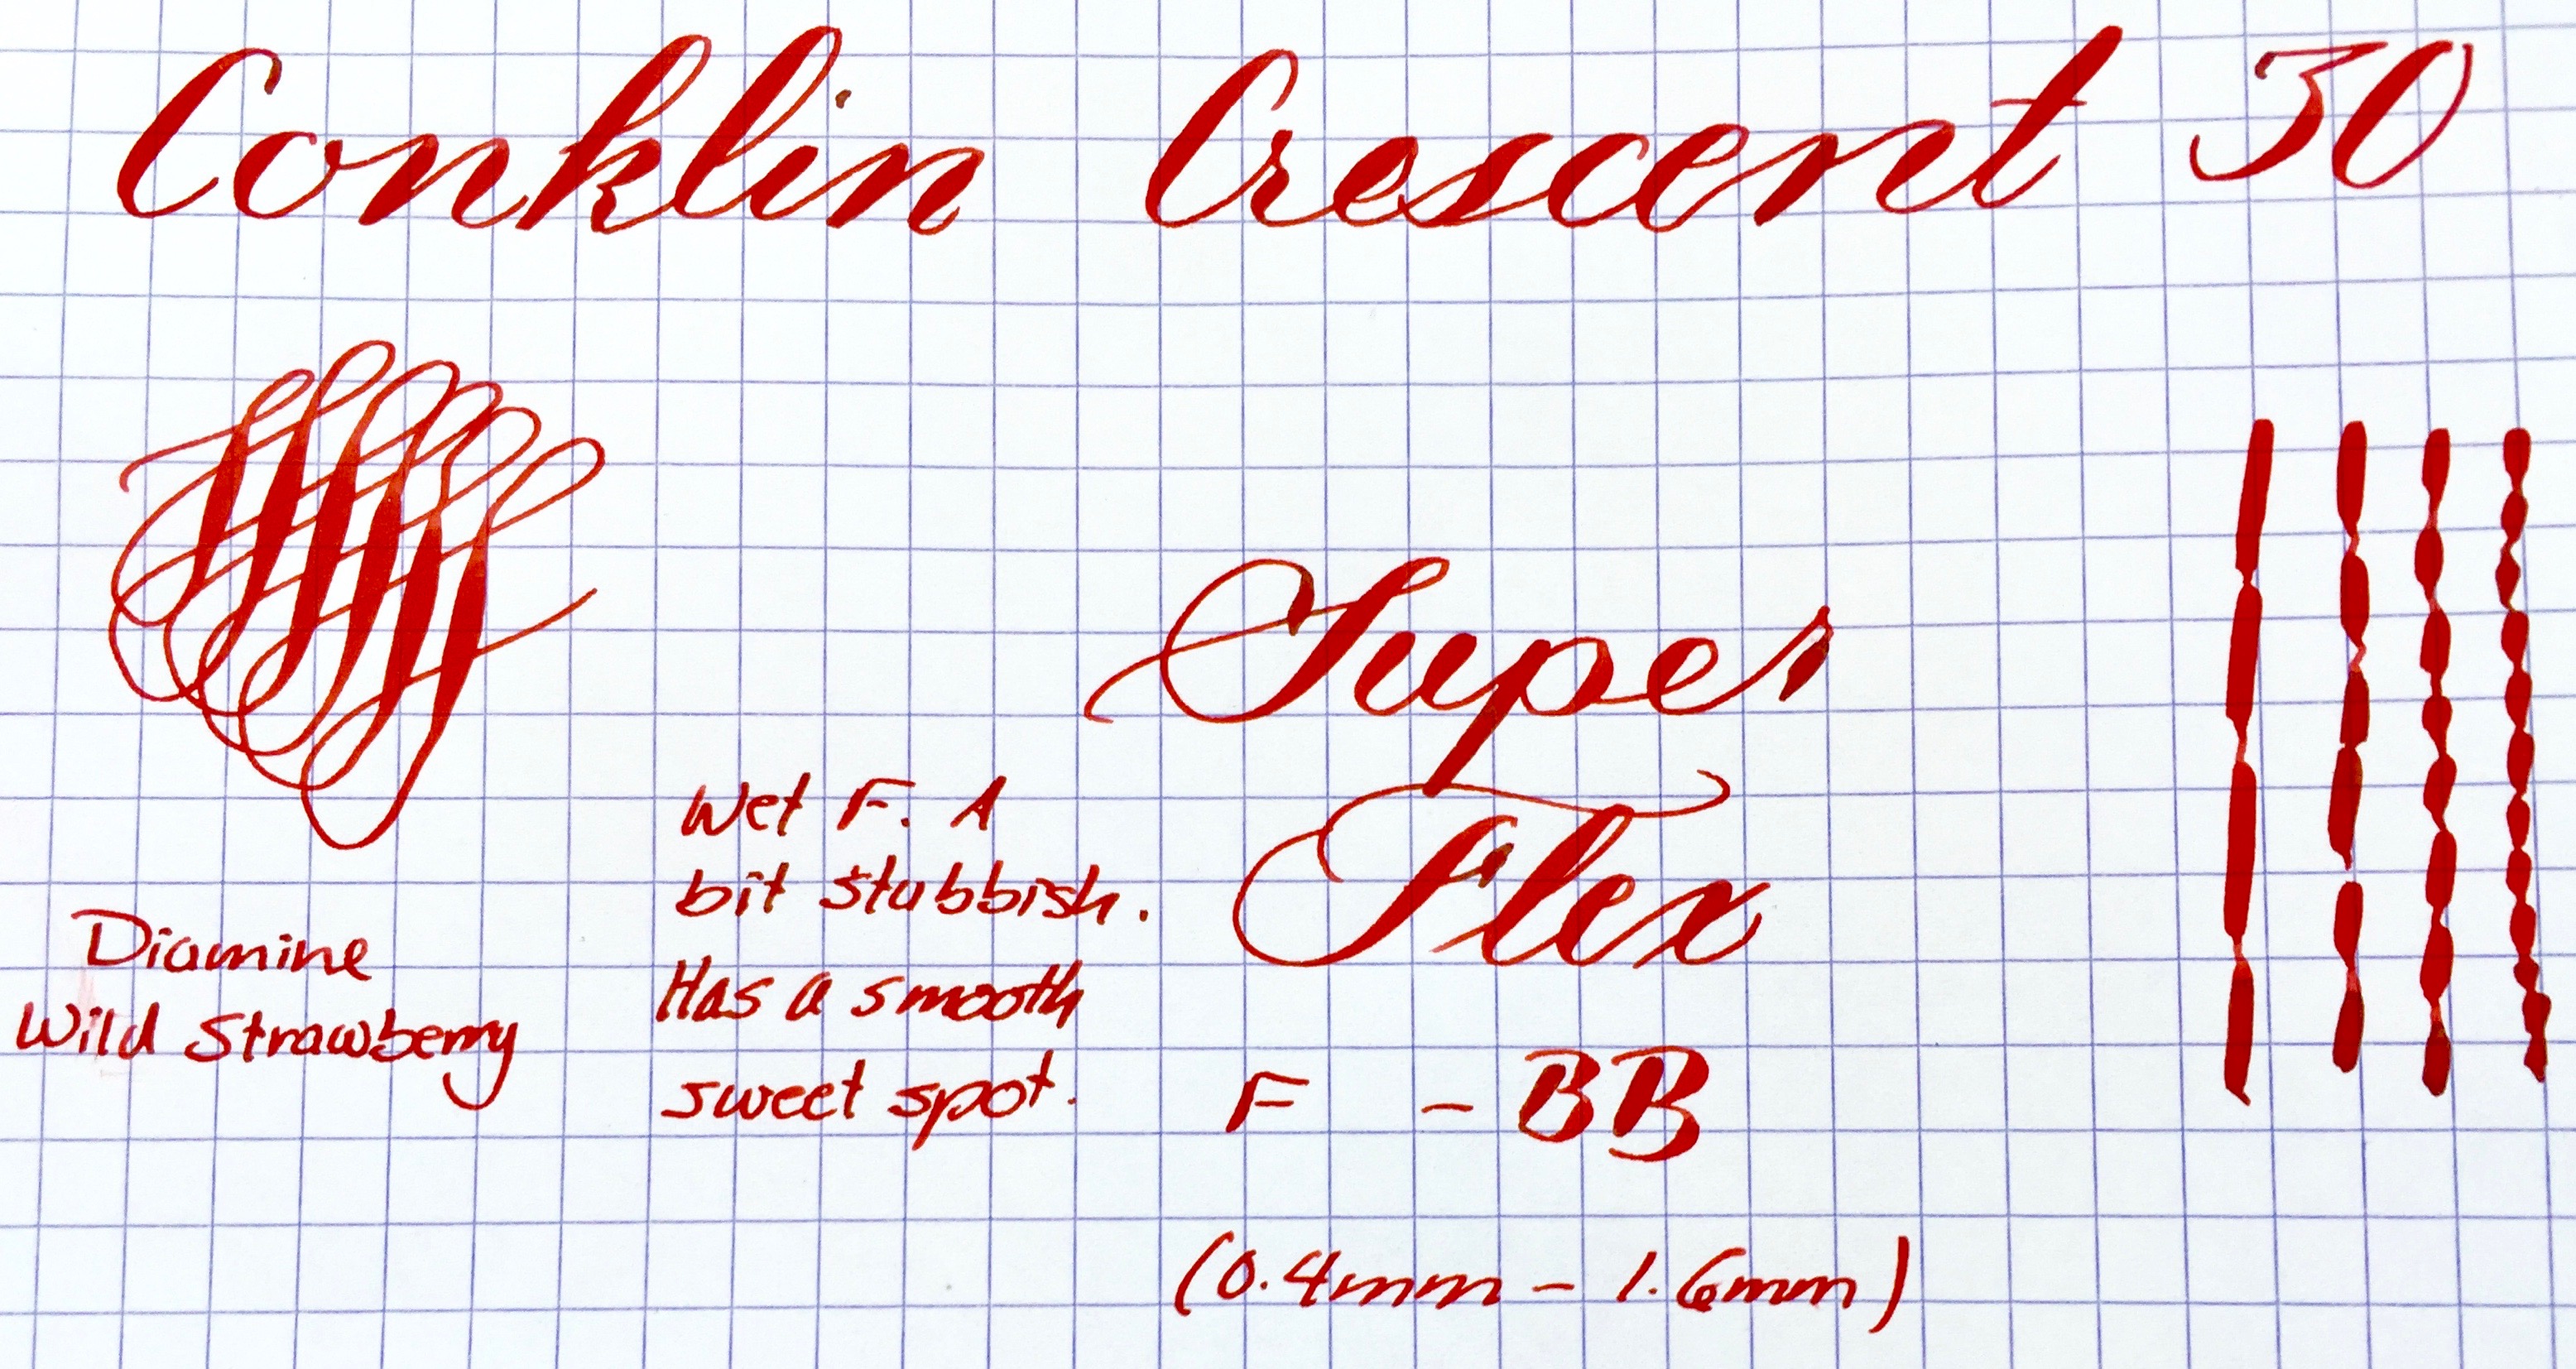 Conklin Crescent 30
Super
Flex
F - BB
(0.4mm - 1.6mm)
Wet F. A
bit stubbish.
Has a smooth
sweet spot.
Diamine
Wild Strawberry